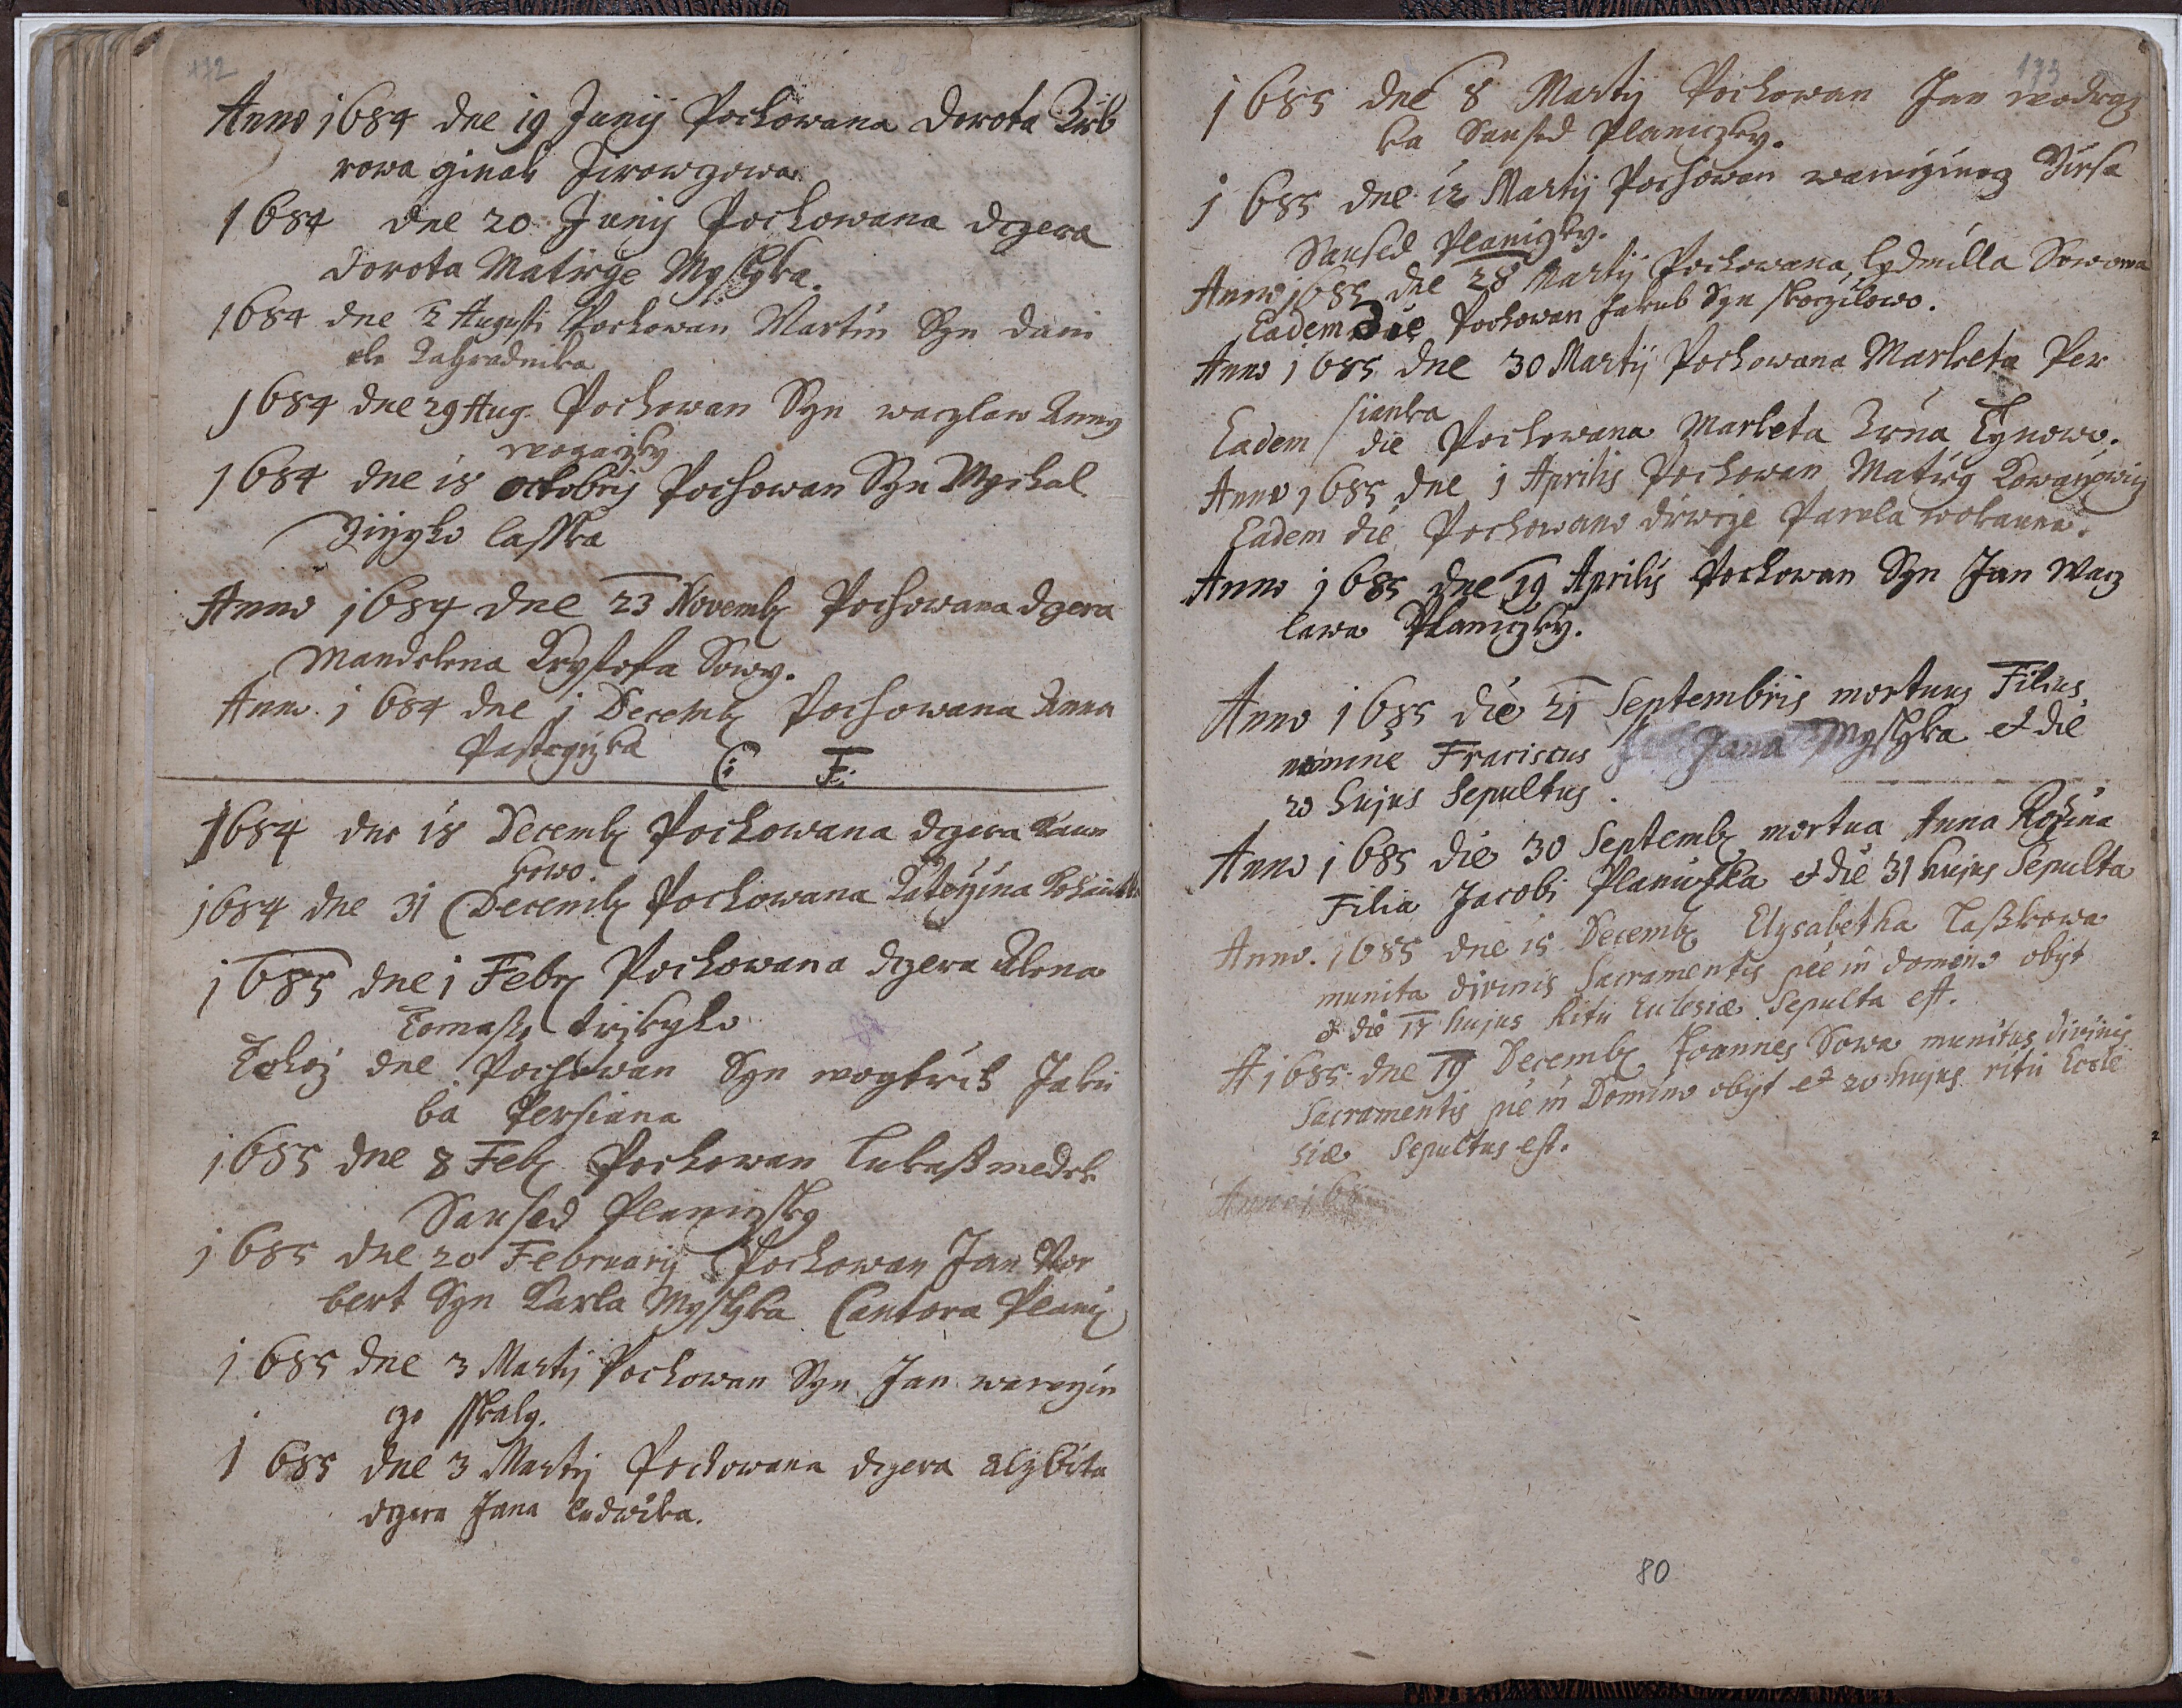 172
Anno 1684 dne 19 Junij Pochowana Dorota Kub
rowa ginak Jirowczowa
1684 dne 20 Junij Pochowana dczera
Dorota Matirge Mysslyka.
1684 dne 2 Augusti Pochowan Martin Syn Dani
ele Zahradnika
1684 dne 29 Aug. Pochowan Syn waczlaw Anny
1684 dne 18 octobrij Pochowan Syn Mychal
lasska
Anno 1684 dne 23 Novemb Pochowana dczera
Mandelena Krystofa Sowy.
Anno. 1684 dne 1 Decemb Pochowana Anna
Pastczyrka C: F:
1684 dne 18 Decemb Pochowana dczera
kowo.
1684 dne 31 Decemb Pochowana Katerzina
1685 dne 1 Febr Pochowana dczera Alena
Tomasse
Tehoz dne Pochowan Syn wogtiech Jaku
ba Persiana
1685 dne 8 Feb Pochowan Lukass medek
Saused Planiczsky
1685 dne 20 Februarij Pochowan Jan Nor
bert Syn Karla Mysslyka Cantora Planicz
1685 dne 3 Martij Pochowan Syn Jan wawrzin
cze sskaly.
1685 dne 3 Martij Pochowana dczera alzbieta
dczera Jana Ludwika.
173
1685 dne 8 Martij Pochowan Jan wodraz
ka Saused Planiczky.
1685 dne 12 Martij Pochowan wawrzinecz
Saused Planiczky.
Anno 1685 dne 28 Martij Pochowana Lydmilla Sowowa
Eadem Die Pochowan Jakub Syn skoczilowo.
Anno 1685 dne 30 Martij Pochowana Marketa Per
sianka
Eadem die Pochowana Marketa
Anno 1685 dne 1 Aprilis Pochowan Matieg
Eadem die Pochowano diewcze Pawla wokauna.
Anno 1685 dne 19 Aprilis Pochowan Syn Jan Wacz
lawa Planiczky.
Anno 1685 die 21 Septembris mortuus Filius
nomine Fraciscus Jana Mysslyka et die
23 hujus Sepultus.
Anno 1685 die 30 Septemb mortua Anna Rosina
Filia Jacobi Planiczka et die 31 hujus Sepulta
Anno. 1685 dne 15 Decemb Elysabetha Lasskowa
munita divinis Sacramentis pie in domino obyt
et die 17 hujus Ritu Eclesiæ Sepulta est.
A 1685 dne 19 Decemb Joannes Sowa munitus divinis
Sacramentis pie in Domino obyt et 20 hujus ritu Eccle
siæ Sepultus est.
80